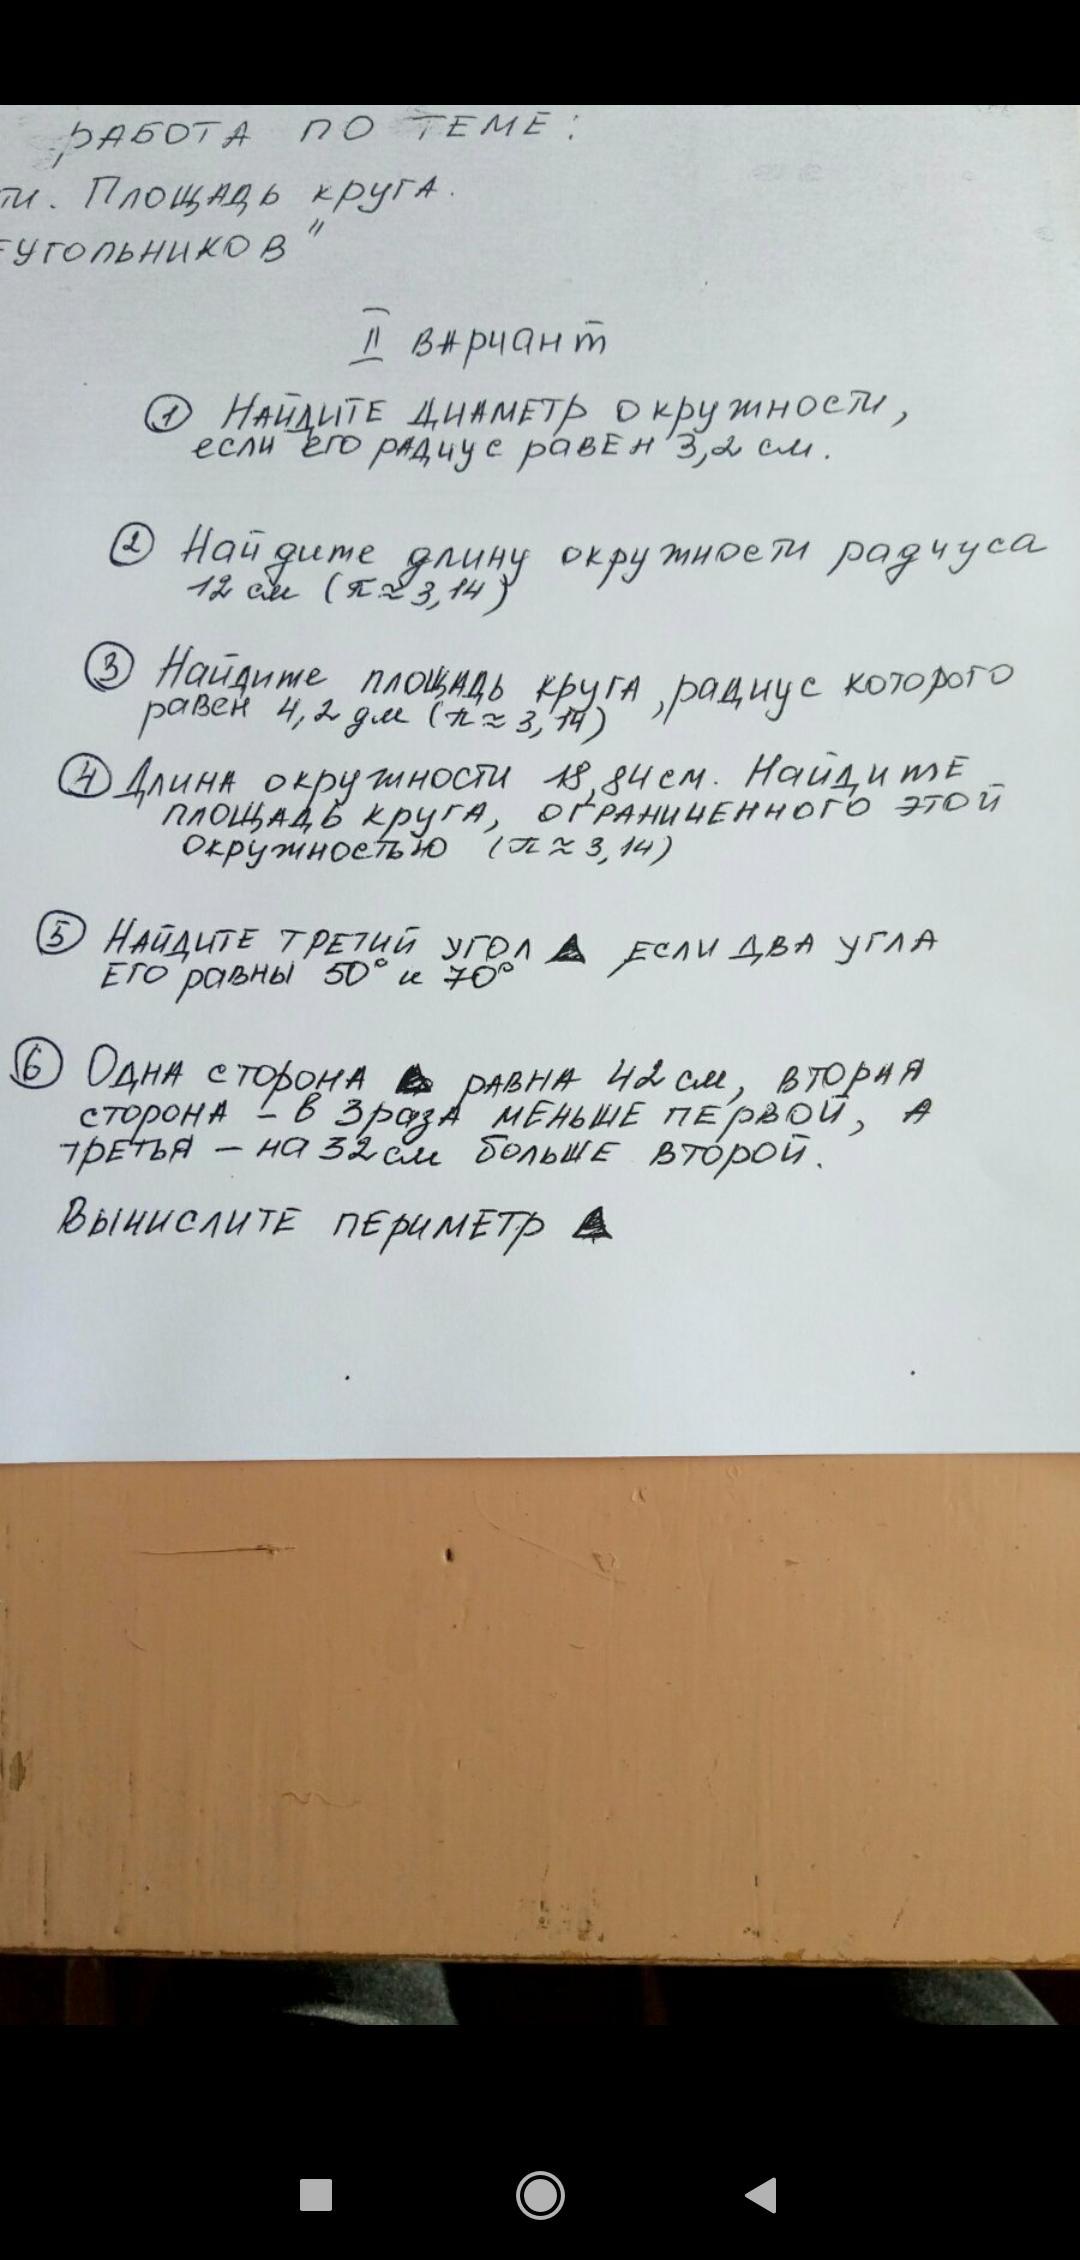 РАБОТА ПО ТЕМЕ:
ти. Площадь круга.
ЕУГОЛЬНИКОВ"
II вариант
① Найдите диаметр окружности,
если его радиус равен 3,2 см.
② Найдите длину окружности радиуса
12 см (π ≈ 3,14)
③ Найдите площадь круга, радиус которого
равен 4,2 дм (π ≈ 3,14)
④ Длина окружности 18,84 см. Найдите
площадь круга, ограниченного этой
окружностью (π ≈ 3,14)
⑤ Найдите третий угол ▲ если два угла
его равны 50° и 70°
⑥ Одна сторона ▲ равна 42 см, вторая
сторона – в 3 раза меньше первой, а
третья – на 32 см больше второй.
Вычислите периметр ▲